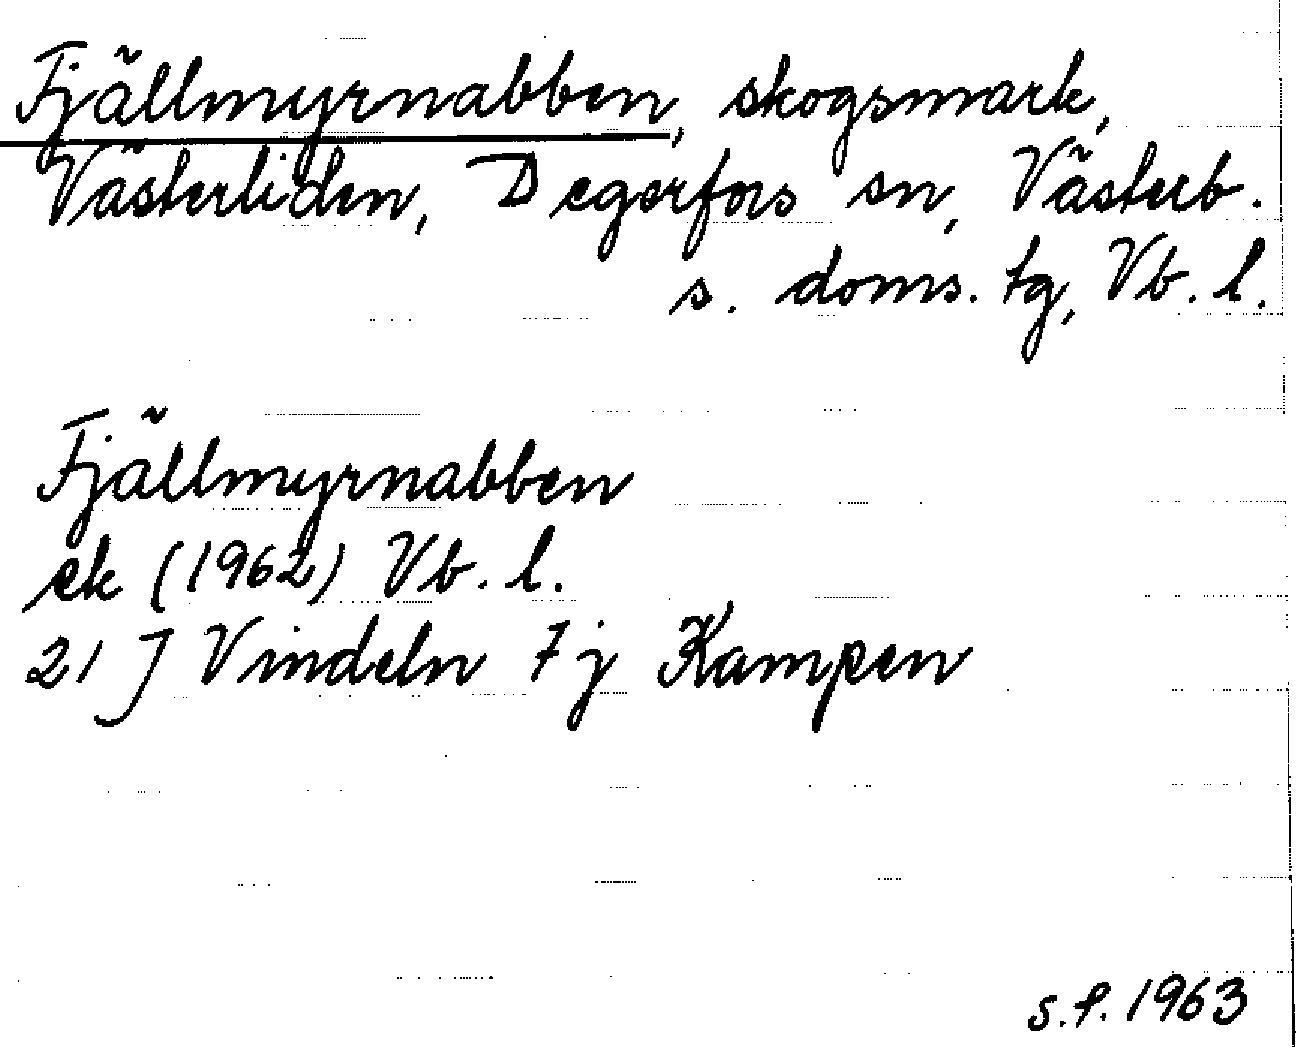 Fjällmyrnabben, skogsmark,
Västerliden, Degerfors sn, Västerb.
s. doms. tg, Vb. l.
Fjällmyrnabben
ek (1962) Vb. l.
21 J Vindeln 7 j Kampen
S.P. 1963